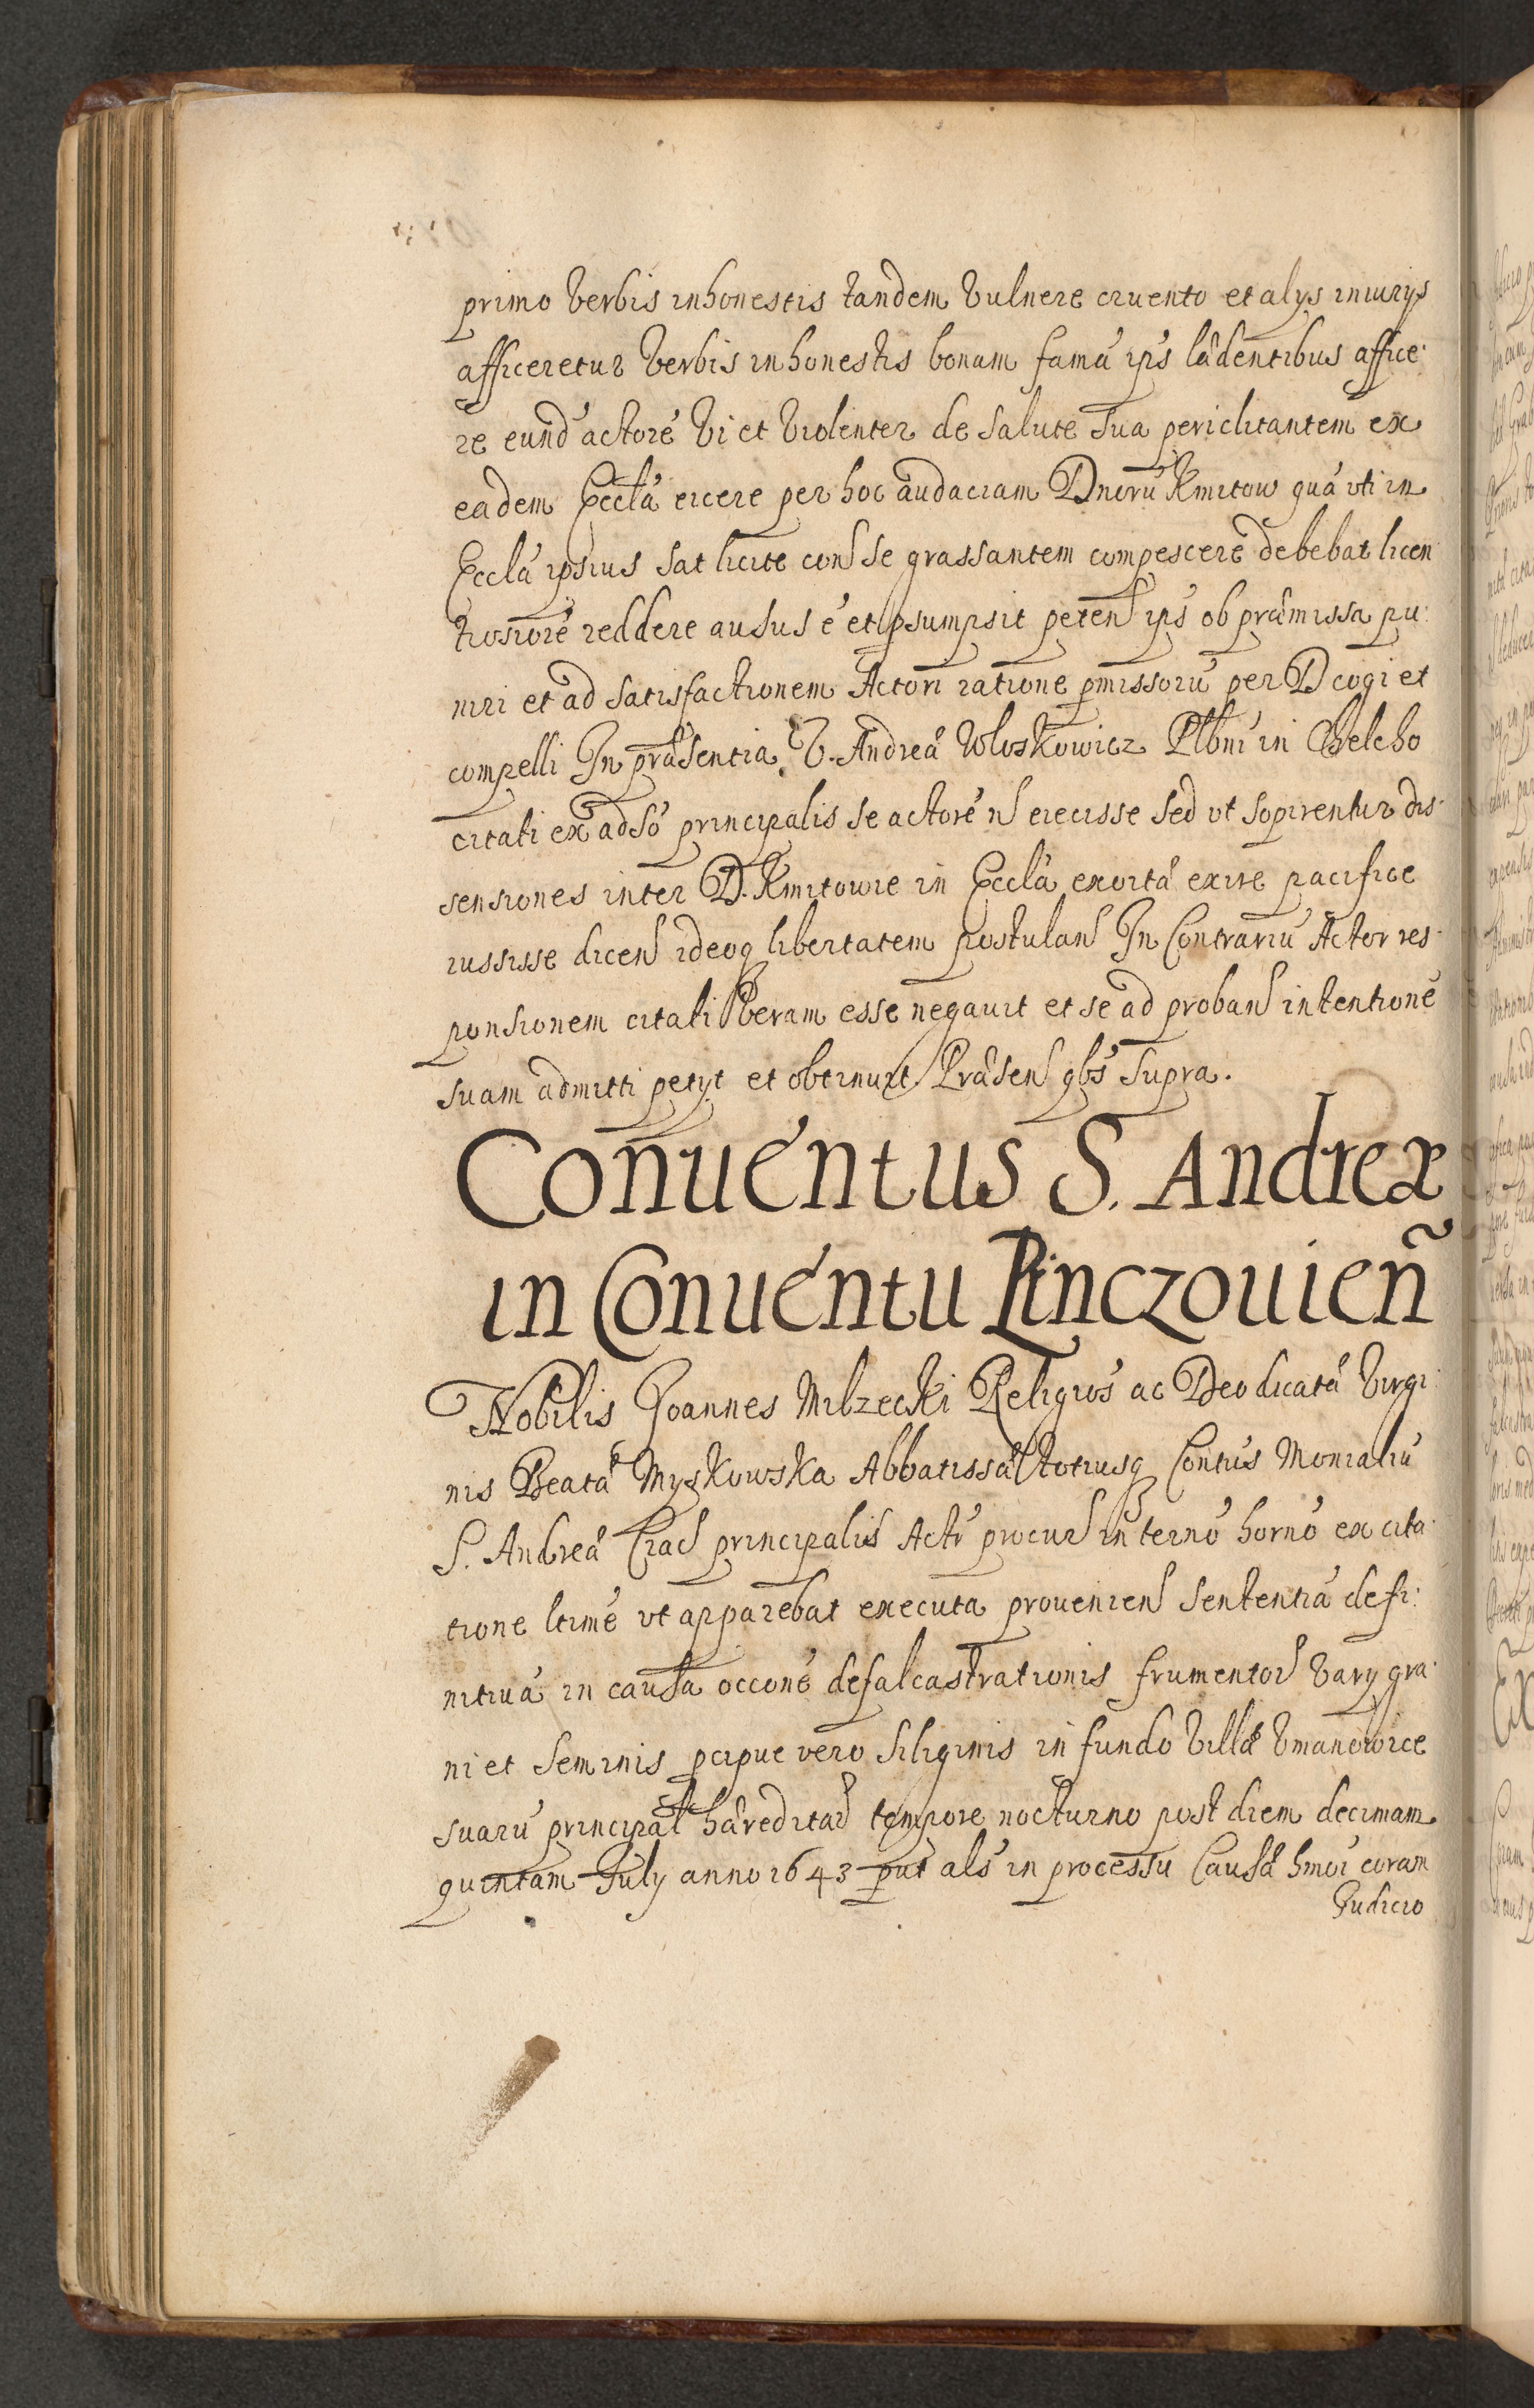 primo verbis inhonestis tandem vulnere cruento et alys iniurys
afficeretur verbis inhonestis bonam famā ips lædentibus affice:
re eund actorē vi et violenter de salute sua periclitantem ex
eadem Eccla eicere per hoc audaciam Dnorū Kmitow quā uti in
Eccla ipsius sat licite con se grassantem compescere debebat licen
tiosiorē reddere ausus ē et psumpsit peten ips ob præmissa pu:
niri et ad satisfactionem Actori ratione pmissorū per D cogi et
compelli In præsentia V. Andreæ Woskowicz Plbni in Chelcho
citati ex adso principalis se actorē n eiecisse sed ut sopirentur dis:
sensiones inter D. Kmitowie in Eccla exortæ exire pacifice
iussisse dicen ideoq libertatem postulan In Contrariū Actor res:
ponsionem citati veram esse negavit et se ad proban intentionē
suam admitti petyt et obtinuit Præsen qbs supra.
Conuentus S. Andreæ
in Conuentu Pinczouien
Nobilis Joannes Milzecki Religios ac Deo dicatæ Virgi:
nis Beatæ Myszkowska Abbatissæ totiusq Contus Monialiū
S. Andreæ Crac principalis Actr procur in ternō hornō ex cita:
tione ltimē ut apparebat executa provenien sententiā defi:
nitiuā in causa occonē defalcastrationis frumentor vary gra:
ni et seminis pcipue vero siliginis in fundo villæ Vmanowice
suarū principal hæreditar tempore nocturno post diem decimam
quintam July anno 1643 put als in processu Causæ hmoi coram
Iudicio